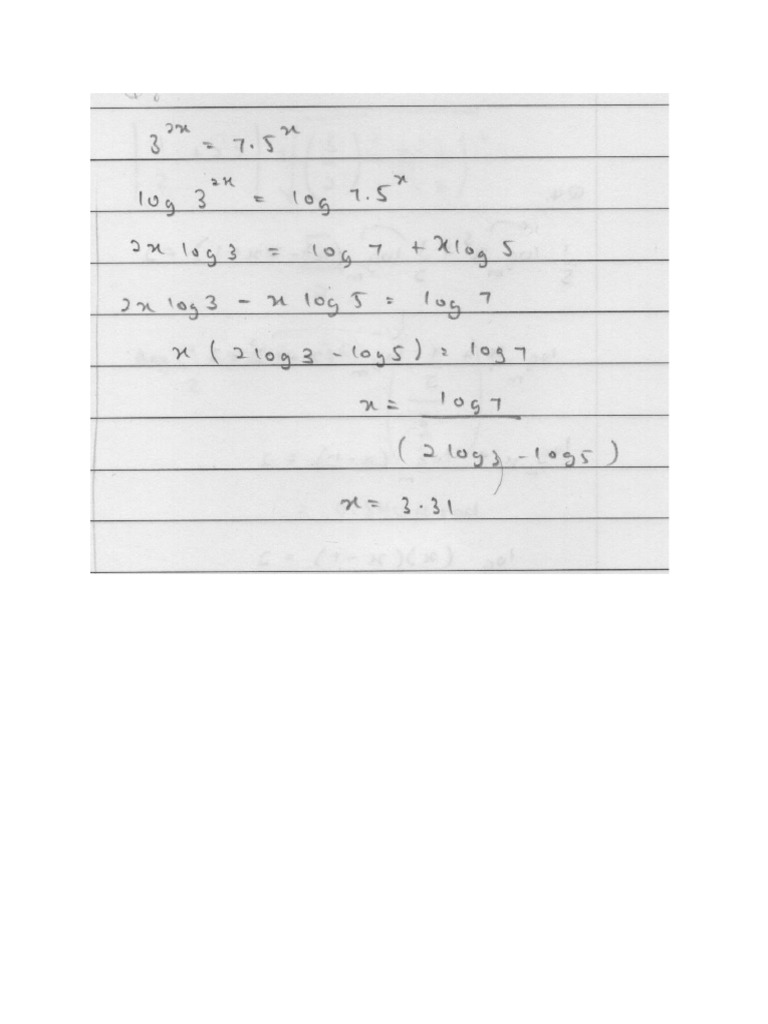 3^2x = 7.5^x
log 3^2x = log 7.5^x
2x log 3 = log 7 + x log 5
2x log 3 - x log 5 = log 7
x ( 2 log 3 - log 5 ) = log 7
x = log 7
( 2 log 3 - log 5 )
x = 3.31